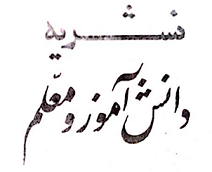 نشریه
دانش آموز و معلم